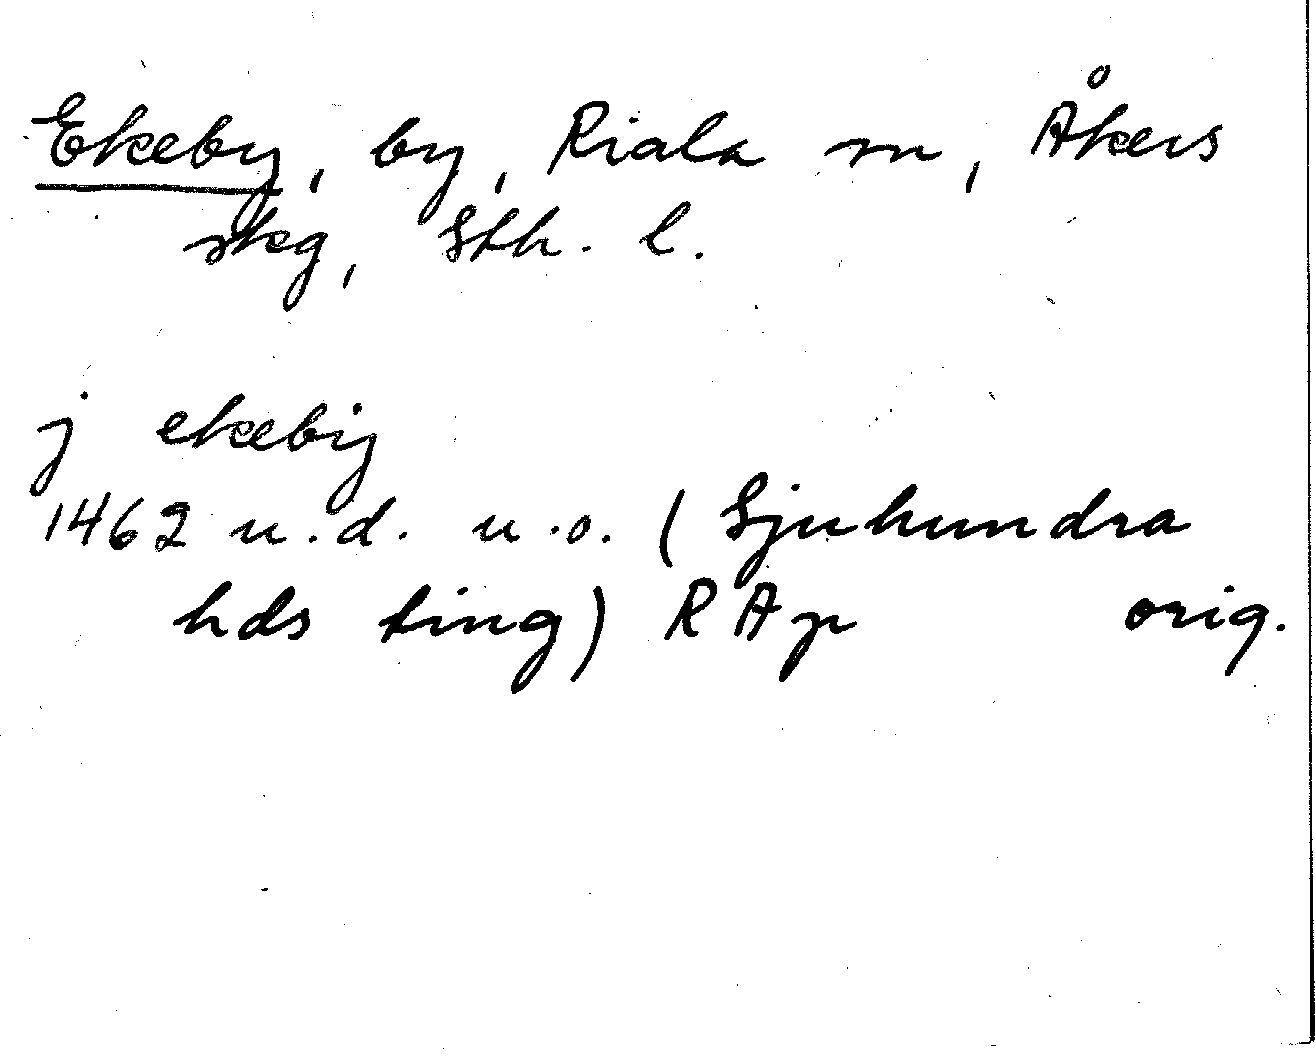 Ekeby, by, Riala sn, Åkers
skg, Sth. l.
j ekebÿ
1462 u.d. u.o. (Sjuhundra
hds ting) RAp orig.